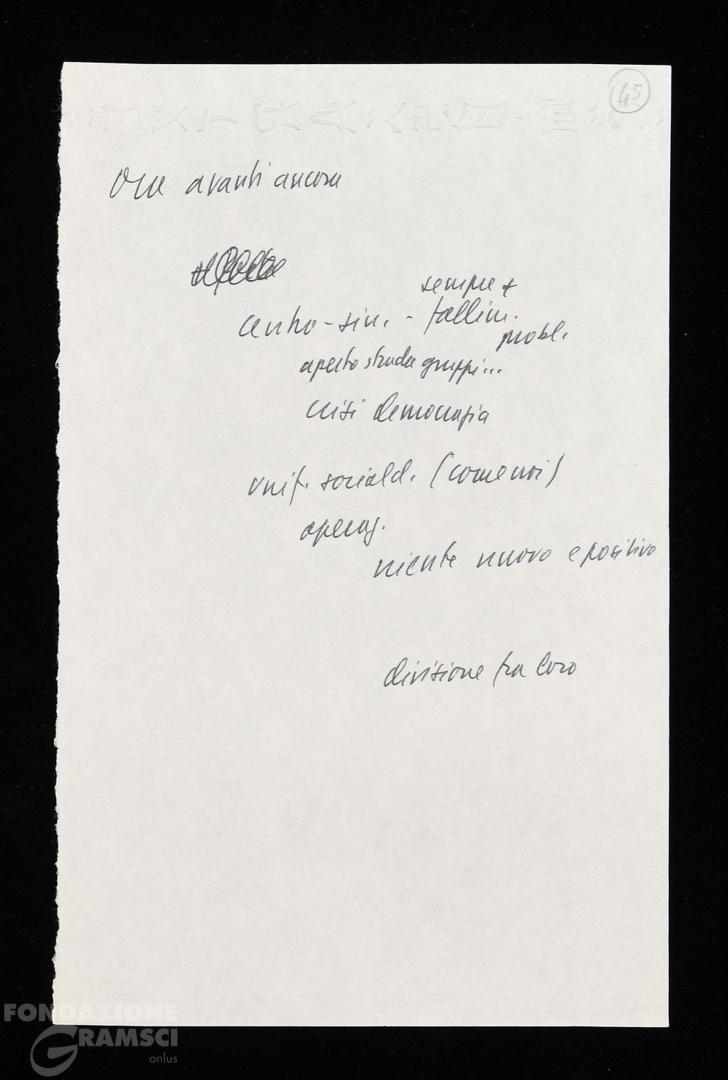 45
Ora avanti ancora
sempre +
centro-sin. - fallim.
probl.
aperto strada gruppi...
crisi democrazia
unif. sociald. (come noi)
operaz.
niente nuovo e positivo
divisione fra loro
FONDAZIONE
GRAMSCI
onlus